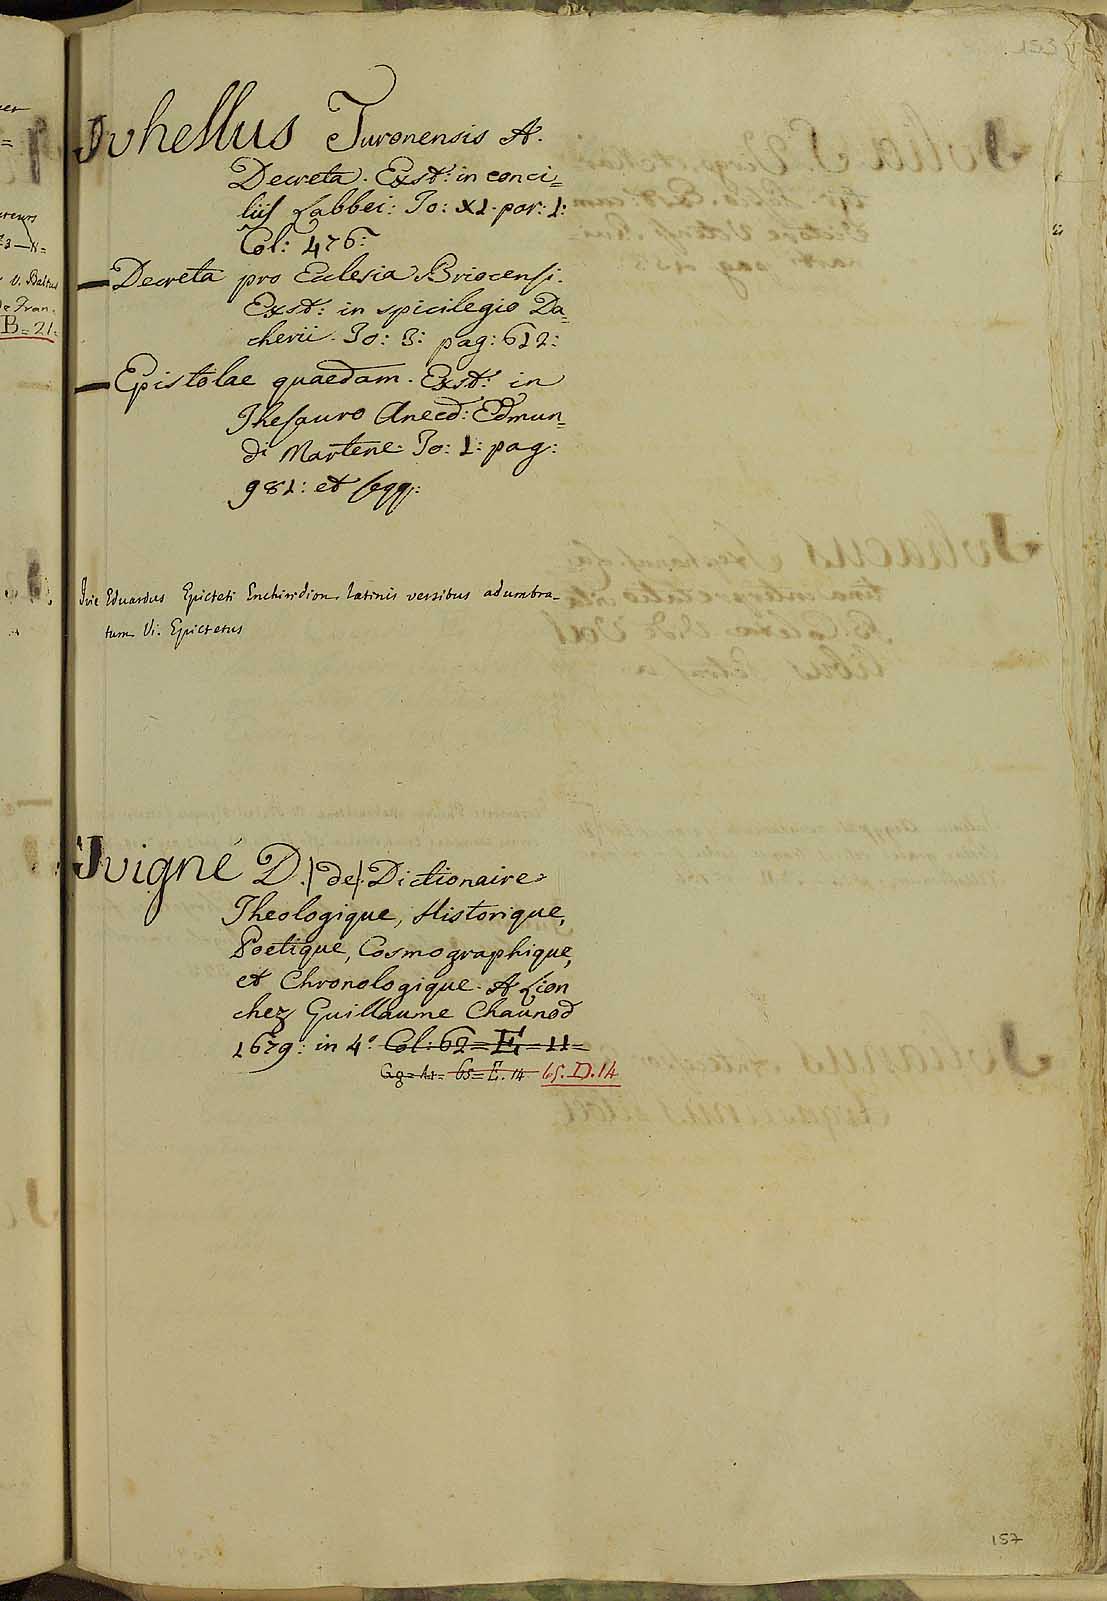 153
Juhellus Turonensis A.
Decreta. Exst: in conci=
liis Labbei: To: XI. par: 1:
Col: 476:
— Decreta pro Eclesia Briocensi.
Exst: in spicilegio Da=
cherii. To: 3: pag: 612:
— Epistolae quaedam. Exst: in
Thesauro Anecd: Edmun=
di Martene. To: 1: pag:
981: et seqq:
Ivie Eduardus Epicteti Enchiridion Latinis versibus adumbra=
tum Vi. Epictetus
Juigné D. /de/. Dictionaire
Theologique, Historique,
Poetique, Cosmographique,
et Chronologique. A Lion
chez Guillaume Chaunod
1679: in 4º Col: 62=E=11=
65=E.14 65.D.14
157